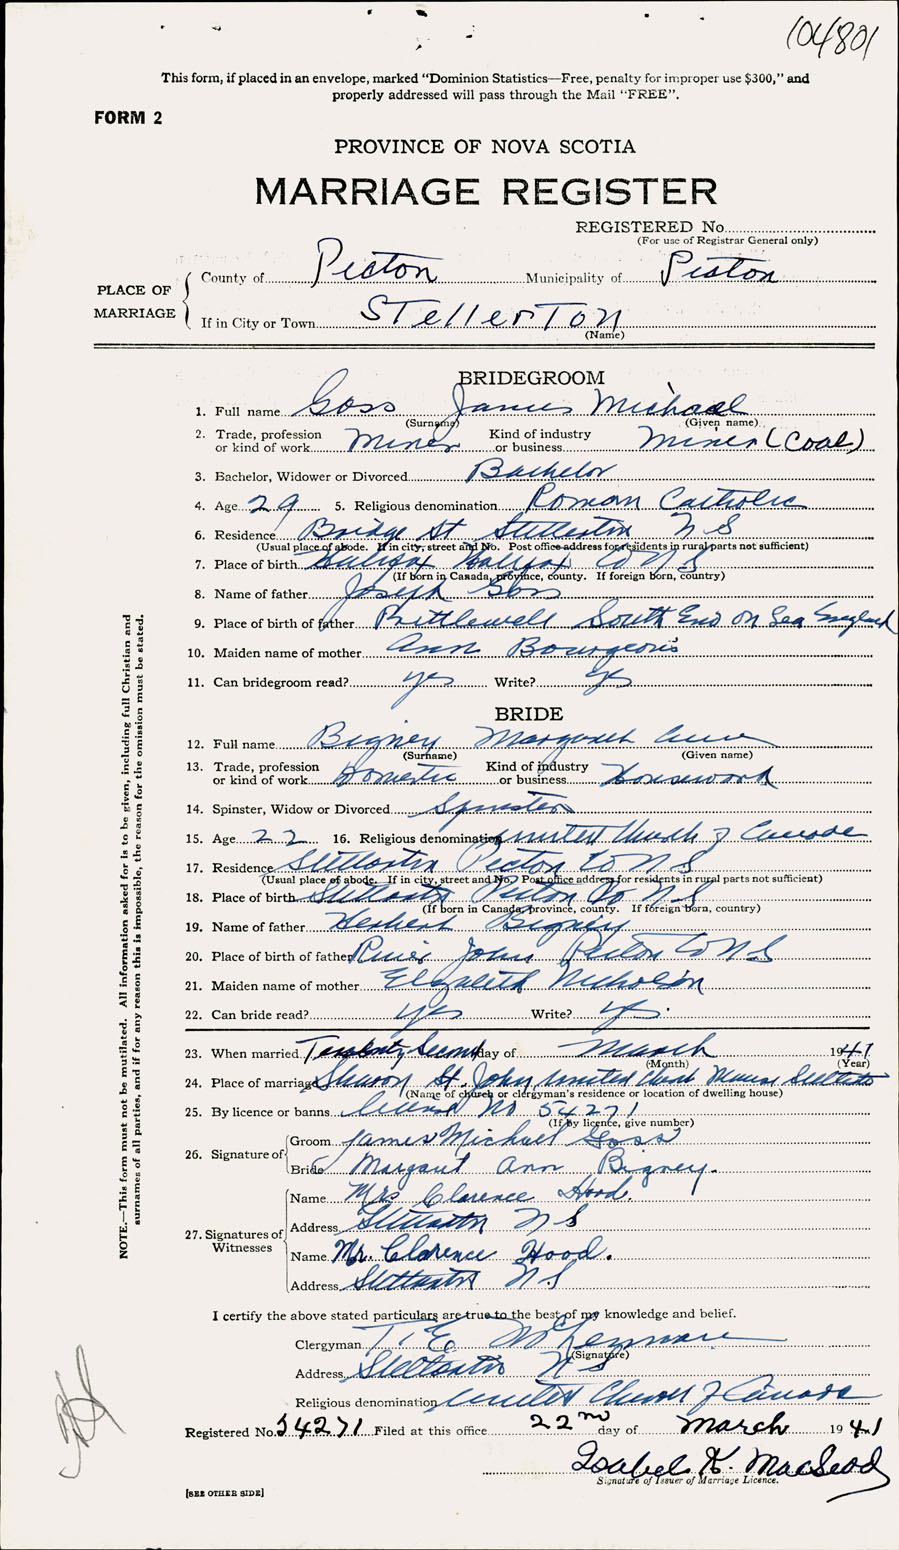 104801
This form, if placed in an envelope, marked “Dominion Statistics—Free, penalty for improper use $300,” and
properly addressed will pass through the Mail “FREE”.
FORM 2
PROVINCE OF NOVA SCOTIA
MARRIAGE REGISTER
REGISTERED No.
(For use of Registrar General only)
PLACE OF MARRIAGE
County of Pictou Municipality of Pictou
If in City or Town STellerTon
(Name)
BRIDEGROOM
1. Full name Goss James Michael
(Surname) (Given name)
2. Trade, profession or kind of work Miner Kind of industry or business Miner (Coal)
3. Bachelor, Widower or Divorced Bachelor
4. Age 29 5. Religious denomination Roman Catholic
6. Residence Bridge St Stellarton N S
(Usual place of abode. If in city, street and No. Post office address for residents in rural parts not sufficient)
7. Place of birth Halifax Halifax Co N S
(If born in Canada, province, county. If foreign born, country)
8. Name of father Joseph Goss
9. Place of birth of father Prittlewell South End On Sea England
10. Maiden name of mother Ann Bourgeois
11. Can bridegroom read? yes Write? yes
BRIDE
12. Full name Bigney Margaret Ann
(Surname) (Given name)
13. Trade, profession or kind of work Domestic Kind of industry or business Housework
14. Spinster, Widow or Divorced Spinster
15. Age 22 16. Religious denomination United Church of Canada
17. Residence Stellarton Pictou Co N S
(Usual place of abode. If in city, street and No. Post office address for residents in rural parts not sufficient)
18. Place of birth Stellarton Pictou Co N S
(If born in Canada, province, county. If foreign born, country)
19. Name of father Herbert Bigney
20. Place of birth of father River John Pictou Co N S
21. Maiden name of mother Elizabeth Nicholson
22. Can bride read? yes Write? yes.
23. When married Twenty Second day of March 1941
(Month) (Year)
24. Place of marriage Sharon St. John United Church Manse Stellarton
(Name of church or clergyman's residence or location of dwelling house)
25. By licence or banns License No 54271
(If by licence, give number)
26. Signature of
Groom James Michael Goss
Bride Margaret Ann Bigney.
27. Signatures of Witnesses
Name Mrs Clarence Hood.
Address Stellarton N S
Name Mr. Clarence Hood.
Address Stellarton N S
I certify the above stated particulars are true to the best of my knowledge and belief.
Clergyman T. E.
(Signature)
Address Stellarton N S
Religious denomination United Church of Canada
Registered No. 54271 Filed at this office 22nd day of March 1941
Isabel K. MacLeod
Signature of Issuer of Marriage Licence.
[SEE OTHER SIDE]
NOTE.—This form must not be mutilated. All information asked for is to be given, including full Christian and
surnames of all parties, and if for any reason this is impossible, the reason for the omission must be stated.